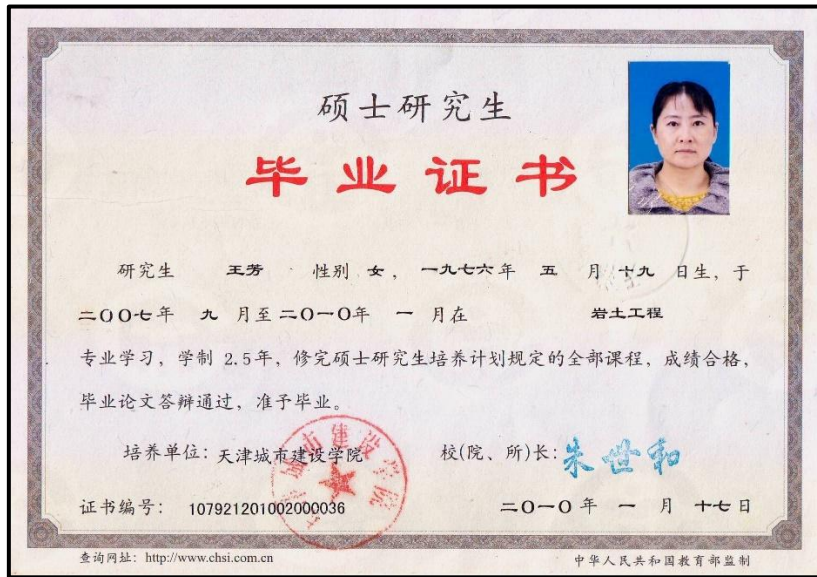 硕士研究生
毕业证书
研究生 王芳 性别 女, 一九七六年 五 月 十九 日生, 于
二〇〇七年 九 月至二〇一〇年 一 月在 岩土工程
专业学习, 学制 2.5年, 修完硕士研究生培养计划规定的全部课程, 成绩合格,
毕业论文答辩通过, 准予毕业。
培养单位: 天津城市建设学院 校(院、所)长: 朱世和
证书编号: 107921201002000036 二〇一〇 年 一 月 十七 日
查询网址: http://www.chsi.com.cn 中华人民共和国教育部监制